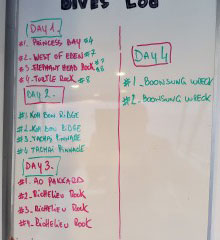 DIVES LOG
DAY 1
#1. PRINCESS BAY #4
#2. WEST OF EDEN #7
#3. ELEPHANT HEAD ROCK
#4. TURTLE ROCK #8
DAY 2.
#1 KOH BON RIDGE
#2 KOH BON RIDGE
#3. TACHAI PINNACLE
#4 TACHAI PINNACLE
DAY 3.
#1. AO PAKKARD
#2. RICHELIEU ROCK
#3. RICHELIEU ROCK
#4. RICHELIEU ROCK
DAY 4
#1_BOONSUNG WRECK
#2_BOONSUNG WRECK